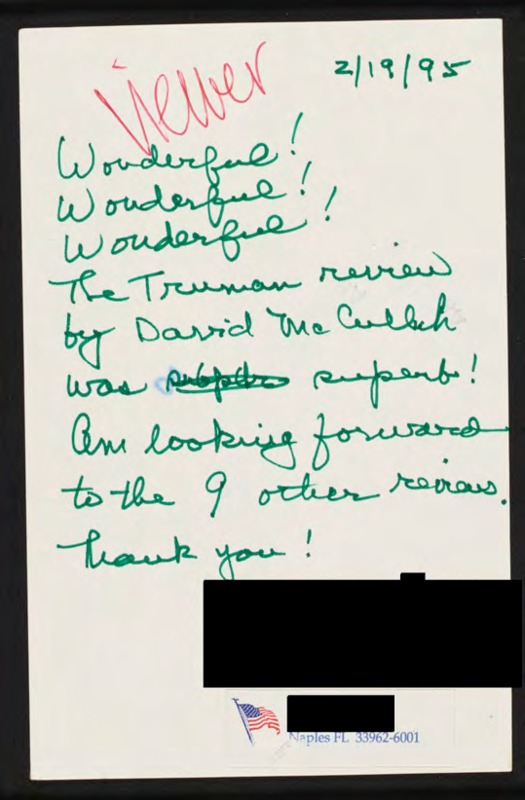 Viewer
2/19/95
Wonderful!
Wonderful!
Wonderful!
The Truman review
by David McCulloh
was superb!
Am looking forward
to the 9 other reviews.
Thank you!
Naples FL 33962-6001